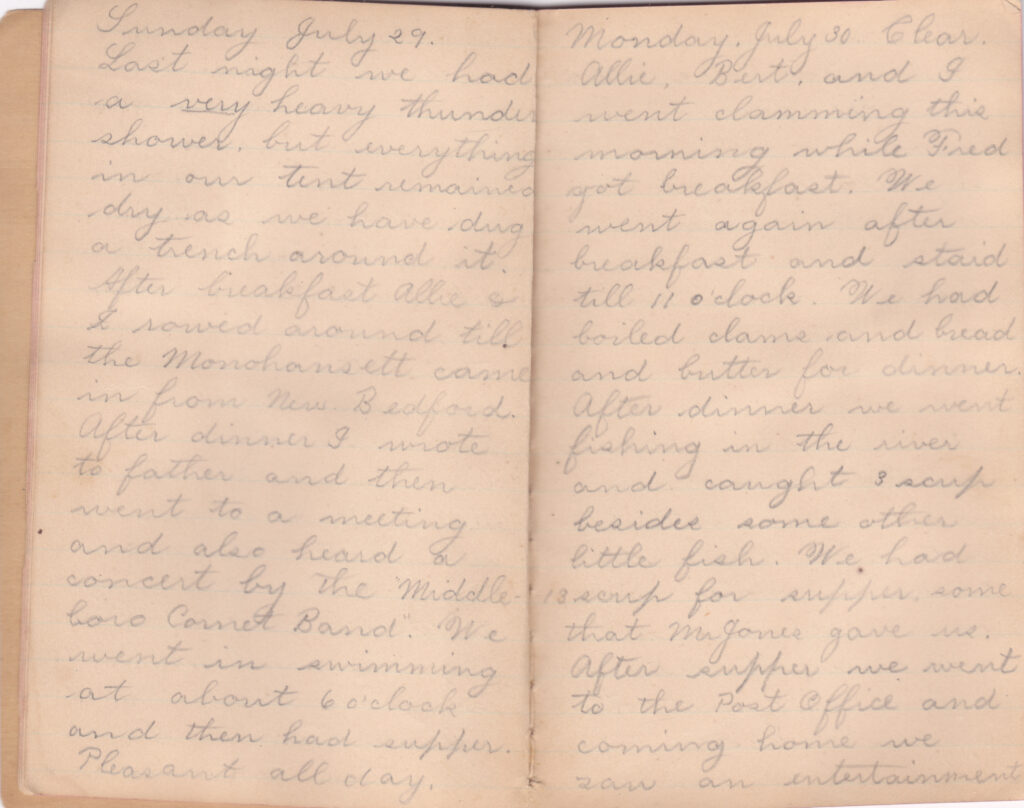 Sunday July 29.
Last night we had
a very heavy thunder
shower, but everything
in our tent remained
dry as we have dug
a trench around it.
After breakfast Allie &
I rowed around till
the Monohansett came
in from New Bedford.
After dinner I wrote
to father and then
went to a meeting
and also heard a
concert by the Middle-
boro Cornet Band". We
went in swimming
at about 6 o'clock
and then had supper.
Pleasant all day.
Monday. July 30 Clear.
Allie, Bert, and I
went clamming this
morning while Fred
got breakfast. We
went again after
breakfast and staid
till 11 o'clock. We had
boiled clams and bread
and butter for dinner.
After dinner we went
fishing in the river
and caught 3 scup
besides some other
little fish. We had
18 scup for supper, some
that Mr Jones gave us.
After supper we went
to the Post Office and
coming home we
saw an entertainment